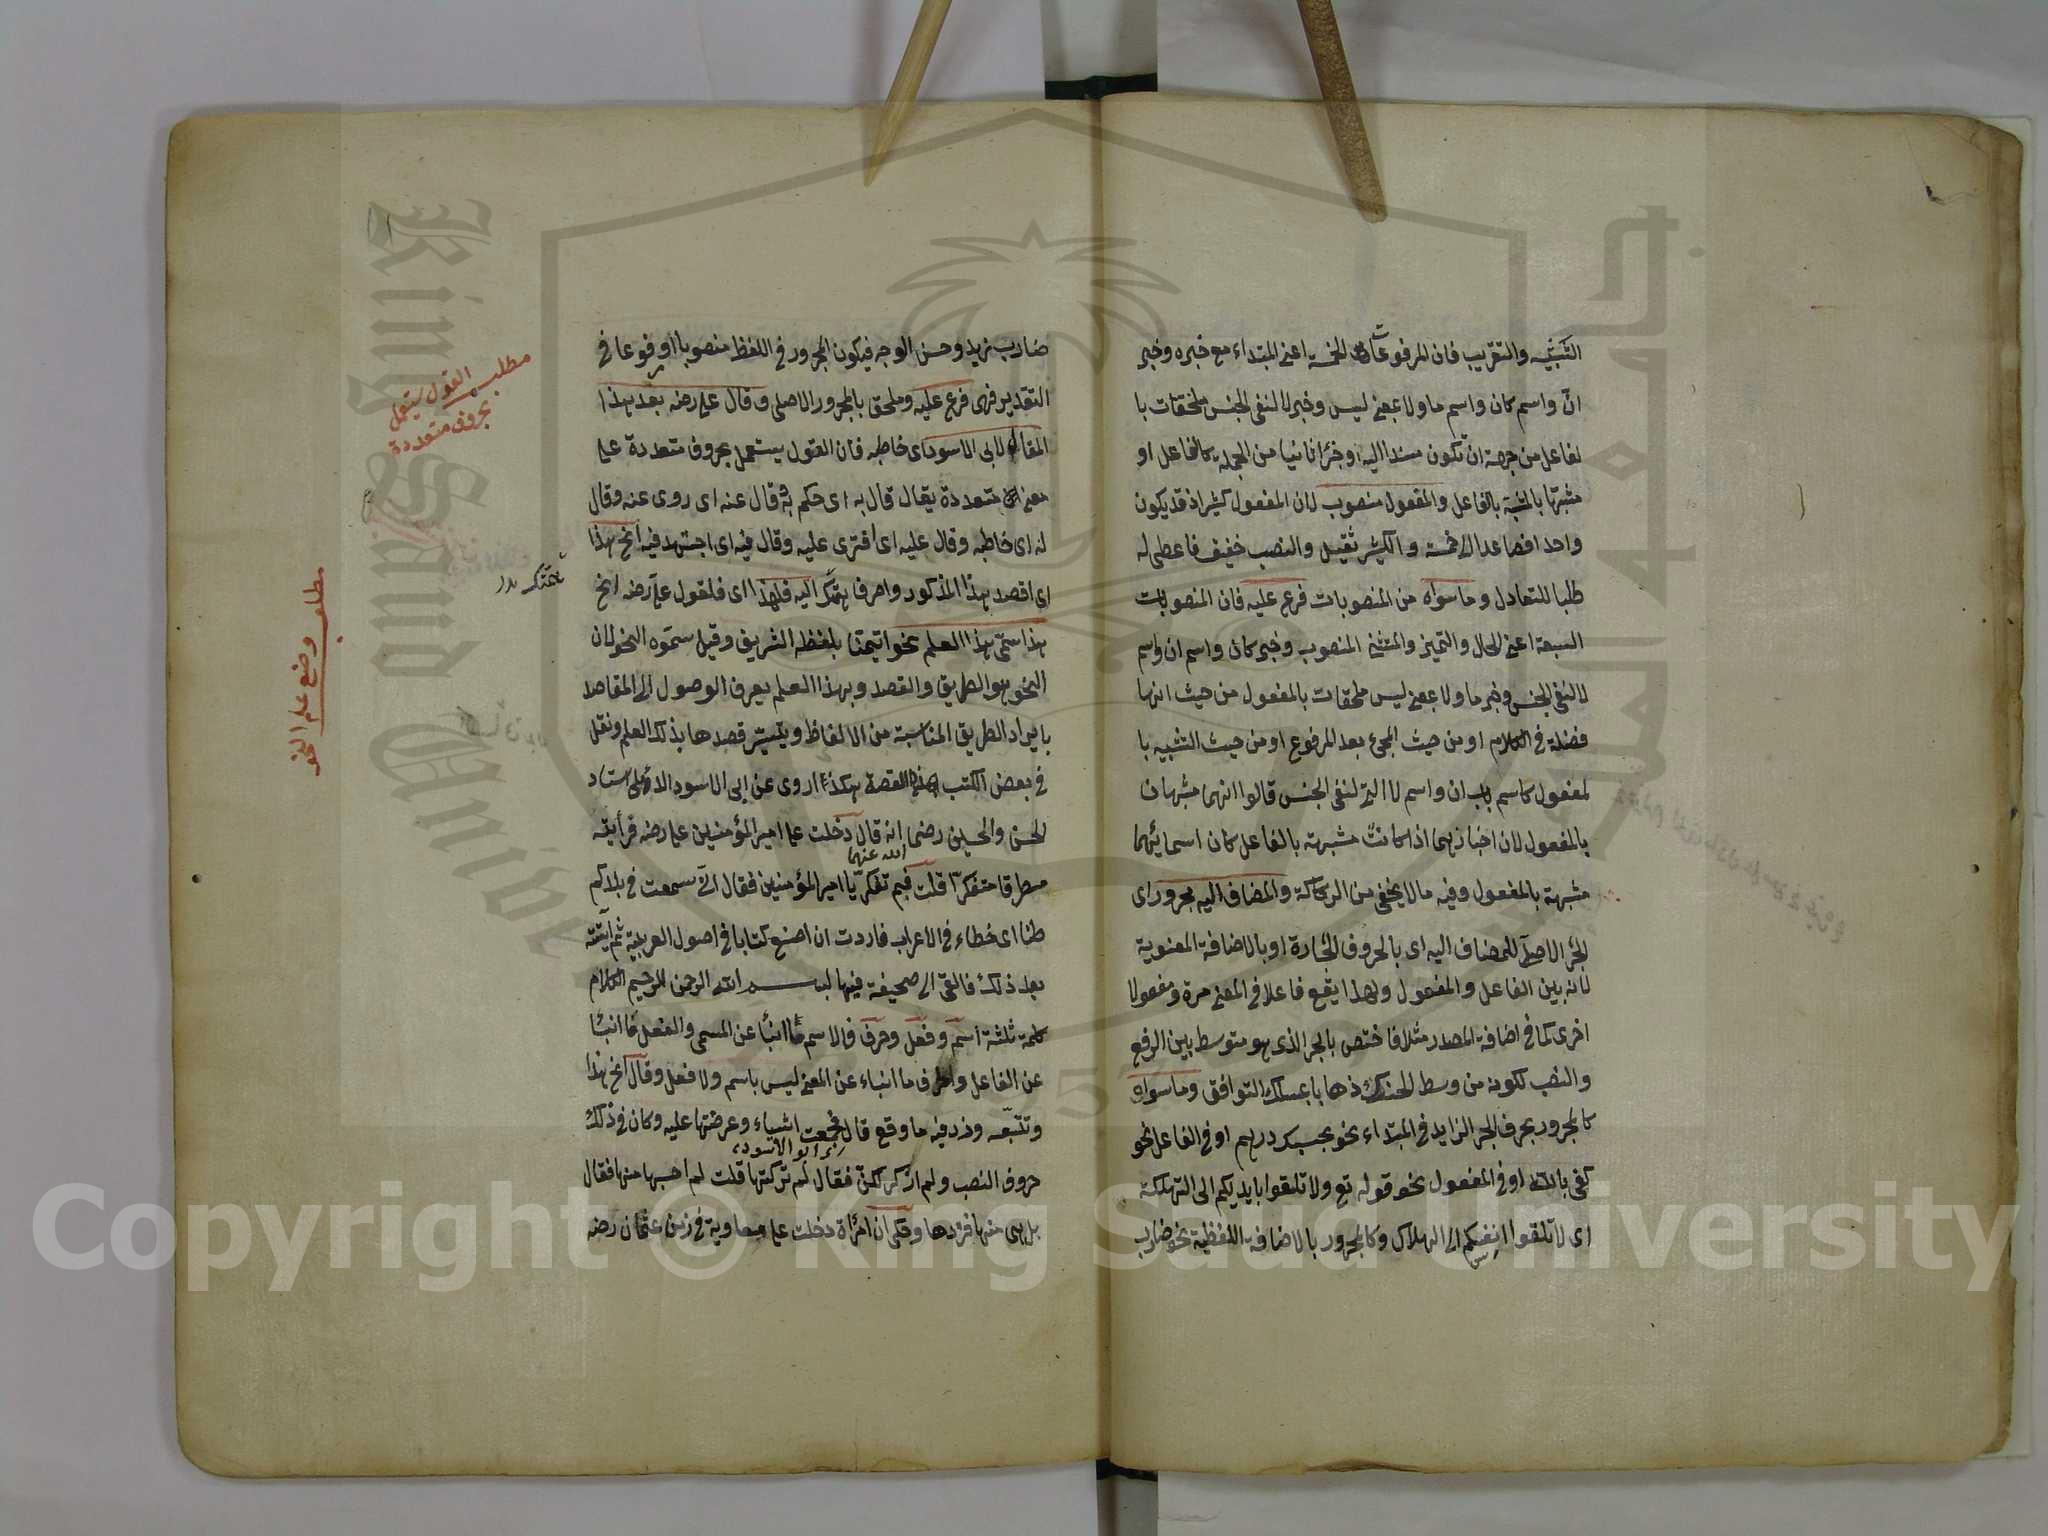 التشبيه والتقريب فان المرفوعات الخمسة اعنى المبتداء مع خبره وخبر
انّ واسم كان واسم ما ولا بمعنى ليس وخبر لا لنفى الجنس ملحقات با
لفاعل من جهة ان تكون مسندا اليه او جزأ ثانيا من الجملة كالفاعل او
مشبّها بالمشبّه بالفاعل والمفعول منصوب لان المفعول كثير اذ قد يكون
واحد افصاعدا الى خمسة والكثير ثقيل والنصب خفيف فاعطى له
طلبا للتعادل وما سواه من المنصوبات فرع عليه فان المنصوبات
السبعة اعنى الحال والتميز والمستثنى المنصوب وخبر كان واسم ان واسم
لا لنفى الجنس وخبر ما ولا بمعنى ليس ملحقات بالمفعول من حيث انها
فضلة فى الكلام او من حيث المجئ بعد المرفوع او من حيث التشبيه با
لمفعول كاسم باب ان واسم لا التى لنفى الجنس قالوا انهما مشبهان
بالمفعول لان اخبارهما اذا كانت مشبهة بالفاعل كان اسمائهما
مشبهة بالمفعول وفيه ما لا يخفى من الركاكة والمضاف اليه مجرور اى
الجر الاصلى للمضاف اليه اى بالحروف الجارة او بالاضافة المعنوية
لانه بين الفاعل والمفعول ولهذا يقع فاعلا فى المعنى مرة ومفعولا
اخرى كما فى اضافة المصدر مثلا فاختص بالجر الذى هو متوسط بين الرفع
والنصب لكونه من وسط الحنك ذهابا بمسلك التوافق وما سواه
كالمجرور بحرف الجر الزايد فى المبتداء نحو بحسبك درهم او فى الفاعل نحو
كفى بالله او فى المفعول نحو قوله تع ولا تلقوا بايديكم الى التهلكة
اى لا تلقوا انفسكم الى الهلاك وكالمجرور بالاضافة اللفظية نحو ضارب
ضارب زيد وحسن الوجه فيكون المجرور فى اللفظ منصوبا او مرفوعا فى
التقدير فهى فرع عليه وملحق بالمجرور الاصلى وقال على رضه بعد هذا
المقال لابى الاسود اى خاطبه فان القول يستعمل بحروف متعددة على
معنى متعددة يقال قال به اى حكم به وقال عنه اى روى عنه وقال
له اى خاطبه وقال عليه اى افترى عليه وقال فيه اى اجتهد فيه انح هذا
اى اقصد هذا المذكور واصرف همتك اليه فلهذا اى فلقول على رضه انح
هذا سمّى هذا العلم نحوا تيمنا بلفظه الشريف وقيل سمّوه النحو لان
النحو هو الطريق والقصد وبهذا العلم يعرف الوصول الى المقاصد
بايراد الطريق المناسبة من الالفاظ ويتيسّر قصدها بذلك العلم ونقل
فى بعض الكتب هذه القصة هكذا روى عن ابى الاسود الدؤلى استاد
الحسن والحسين رضى الله عنهما انه قال دخلت على امير المؤمنين على رضه فرأيته
مطرقا متفكرّا قلت فيم تفكرّ يا امير المؤمنين فقال انّى سمعت فى بلدكم
لحنا اى خطاء فى الاعراب فاردت ان اصنع كتابا فى اصول العربية ثم آتيته
بعد ذلك فالقى الى صحيفة فيها بسم الله الرحمن الرحيم الكلام
كلمة ثلثة اسم وفعل وحرف فالاسم ما انبأ عن المسمى والفعل ما انبأ
عن الفاعل والحرف ما انباء عن المعنى ليس باسم ولا فعل وقال انح هذا
وتتبّعه وزد فيه ما وقع قال ابو الاسود فجمعت اشياء وعرضتها عليه وكان فى ذلك
حروف النصب ولم اذكر لكنّ فقال لم تركتها قلت لم احسبها منها فقال
بل هى منها فزدها وحكى ان امرأة دخلت على معاوية فى زمن عثمان رضه
مطلب القول يستعمل
بحروف متعددة
مطلب وضع علم النحو
Copyright © King Saud University